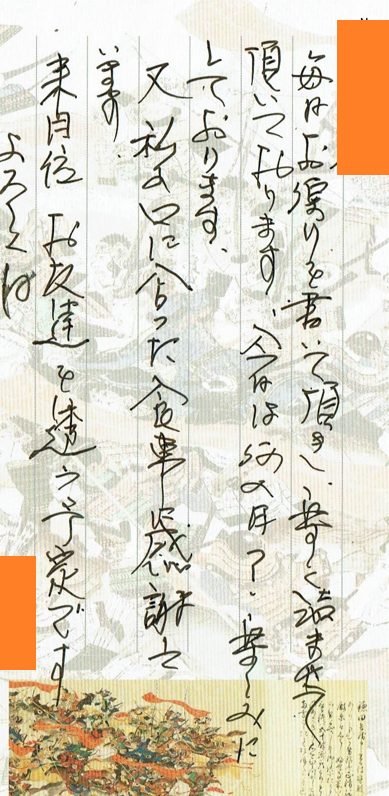 毎日お便りを書いて頂き、楽しく読ませて
頂いております、今日は父の日で、楽しみに
しております、
又 私の口に合った食事に感謝して
います.
来月位 お友達と逢う予定です
よろしくお